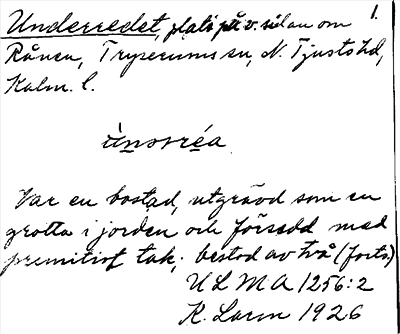 Underredet, plats på v. sidan om 1.
Rånen, Tryserums sn, N. Tjusts hd,
Kalm. l.
Var en bostad, utgrävd som en
grotta i jorden och försedd med
premitivt tak; bestod av två (forts)
ULMA 1256:2
K. Larm 1926